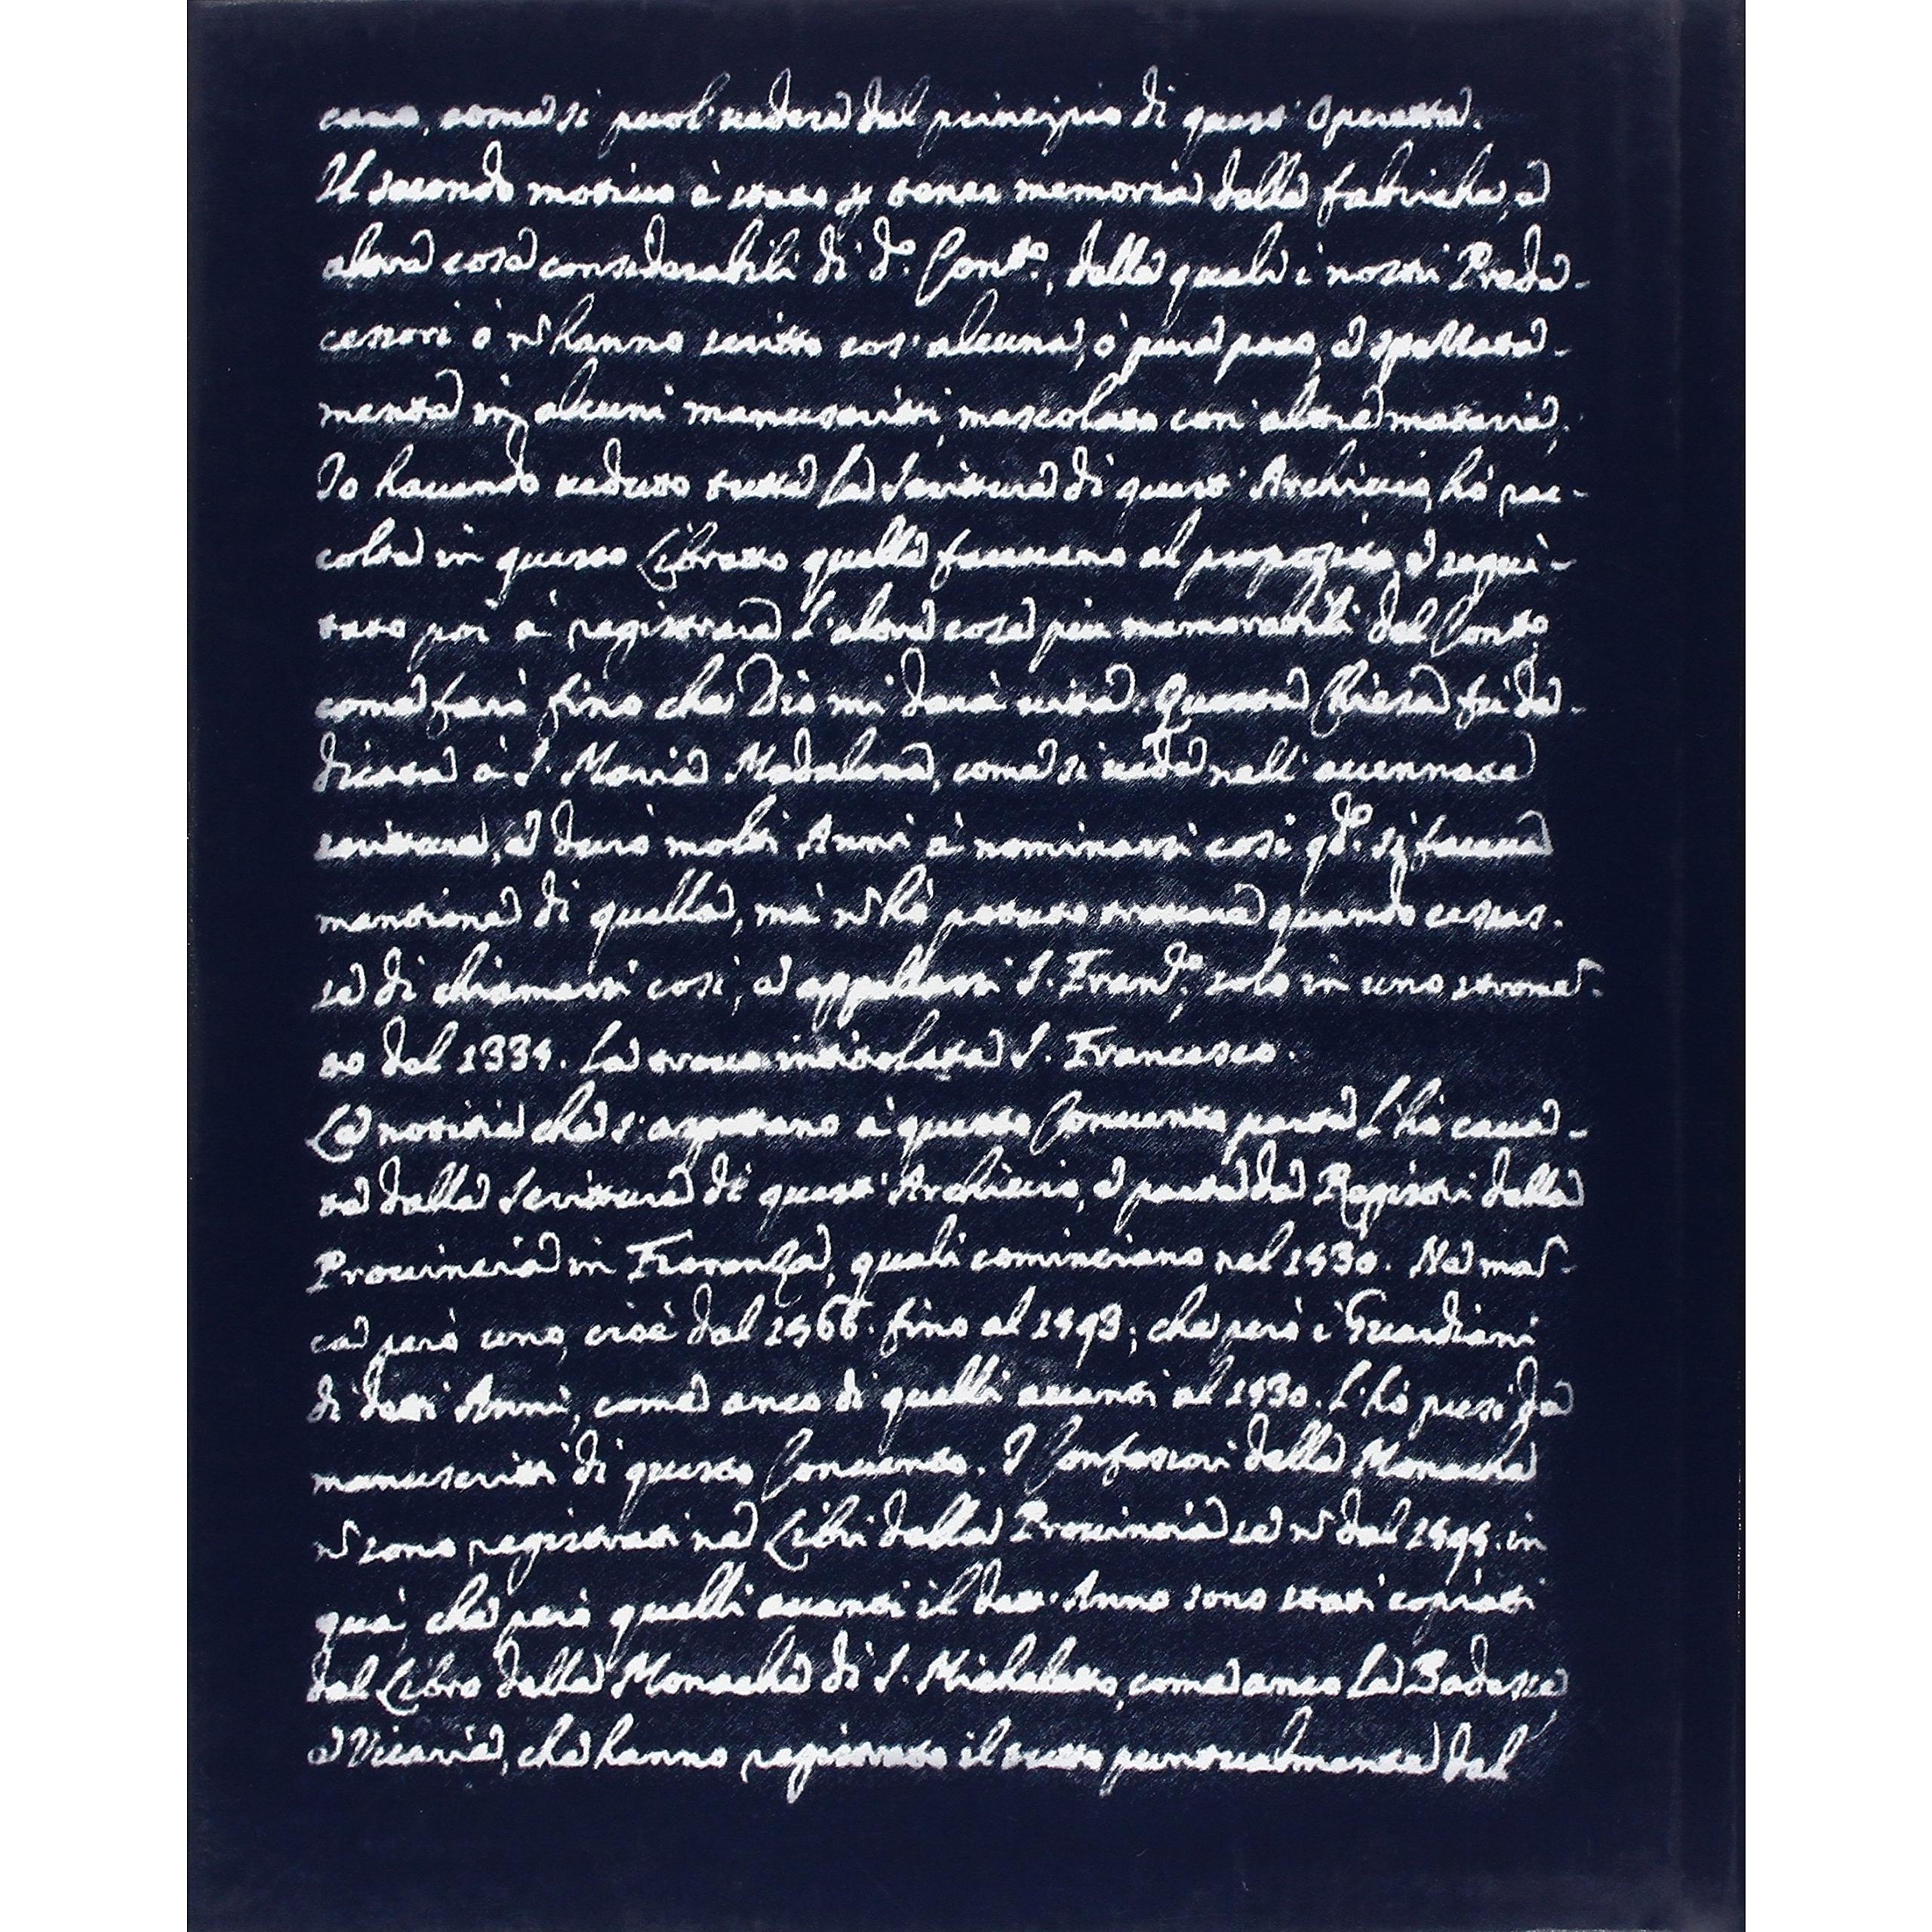 cano, come si puol' uedere dal principio di quest' Operetta.
Il secondo motiuo è stato p tener memoria delle fabriche, e
altre cose considerabili di d.º Conu.º, delle quali i nostri Prede-
cessori ò ñ hanno scritto cos' alcuna, ò pure poco, e spezzata-
mente in alcuni manuscritti, mescolato con' altre materie.
Io hauendo ueduto tutte le Scritture di quest' Archiuio, hò rac-
colto in questo Libretto quelle faceuano al proposito, e segui-
tato poi à registrare l'altre cose più memorabili del Conu.º
come farò fino che Dio mi darà uita. Questa Chiesa fù de-
dicata à S. Maria Madalena, come si uede nell' accennate
scritture, e durò molti Anni à nominarsi così qd.º si faceua
mentione di quella, mà ñ hò potuto trouare quando cessas-
se di chiamarsi così, e appellarsi S. Fran.º, solo in uno strome-
to dal 1334. la trouo intitolata S. Francesco.
Le notitie che s'aspettano à questo Conuento parte l'hò caua-
te dalle Scritture di quest' Archiuio, e parte da Registri della
Prouincia in Fiorenza, quali cominciano nel 1530. Ne man-
ca però uno, cioè dal 1566. fino al 1593; che però i Guardiani
di detti Anni, come anco di quelli auanti al 1530. l'hò presi da
manuscritti di questo Conuento. I Confessori delle Monache
ñ sono registrati ne Libri della Prouincia se ñ dal 1594. in
quà, che però quelli auanti il dett' Anno sono stati copiati
dal Libro delle Monache di S. Micheletto, come anco le Badesse
e Vicarie, che hanno registrato il tutto puntualmente dal